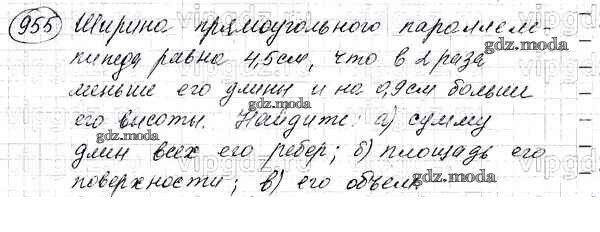 955 Ширина прямоугольного параллеле-
пипеда равна 4,5см, что в 2 раза
меньше его длины и на 0,9см больше
его высоты. Найдите: а) сумму
длин всех его ребер; б) площадь его
поверхности; в) его объем
gdz.moda
gdz.moda
gdz.moda
gdz.moda
gdz.moda